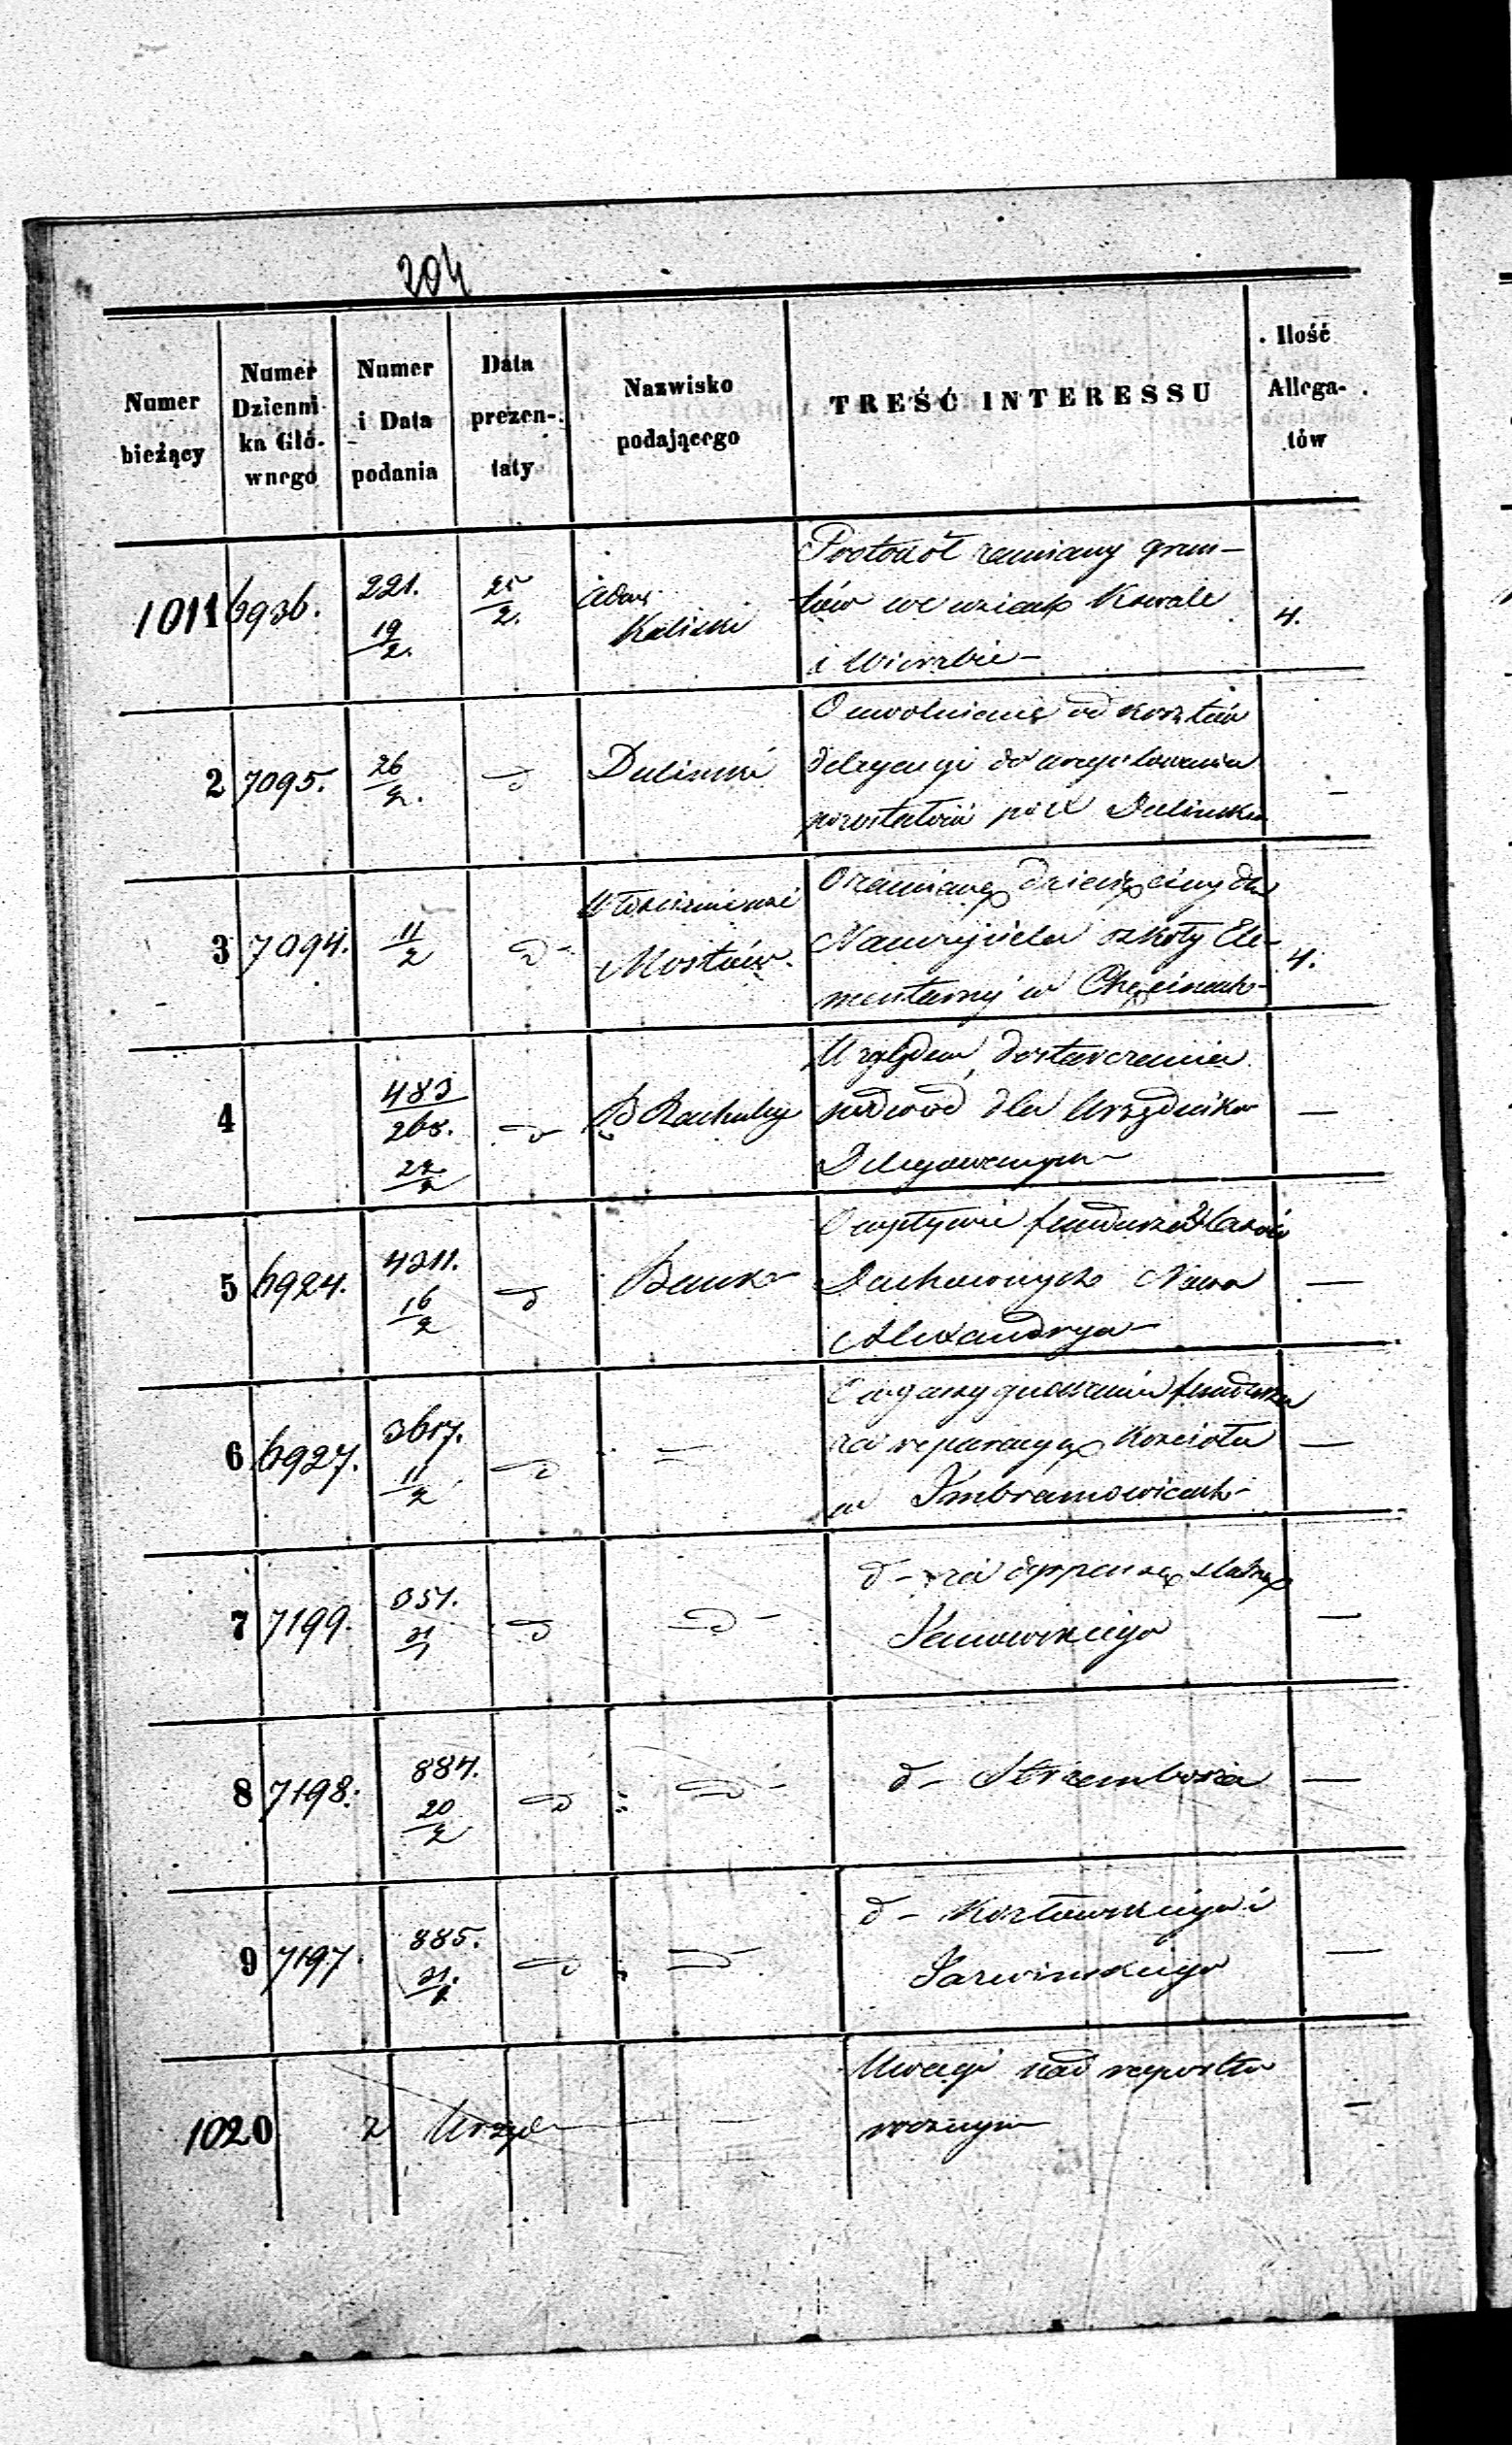 204
Numer bieżący
Numer Dzienni- ka Głó- wnego
Numer i Data podania
Data prezen- taty
Nazwisko podającego
TREŚĆ INTERESSU
Ilość Allega- tów
1011 6936. 221. 19/2. 25/2. Adam Kaliski
Protokół zamiany grun-
tów we wsiach Kowale
i Wierzbie — 4.
2 7095. 26/2. d Duliński
O uwolnienie od kosztów
delegacyi do uregulowania
pozostałości po X Dulińskim —
3 7094. 11/2 d- Włościanie wsi Mostów.
O zamianę dziesięciny dla
Nauczyciela szkoły Ele-
mentarnej w Chęcinach- 4.
4 483/268. 22/2 d B Rachuby
Względem dostarczenia
podwod dla Urzędnika
Delegowanego —
5 6924. 4311. 16/2 d Bank
O wpływie funduszów
Duchownych Nowa
Alexandrya —
6 6927. 3617. 11/2 d —
O wyassygnowanie funduszu
za reparacyą Kościoła
w Imbramowicach- —
7 7199. 351. d d-
d- za
8 7198. 884. 20/2 d d-
d- Strzembosza —
9 7197. 885. d d-
d- Kozłowskiego i
—
1020 z Urzędu —
Uwagi nad raportem
rocznym —